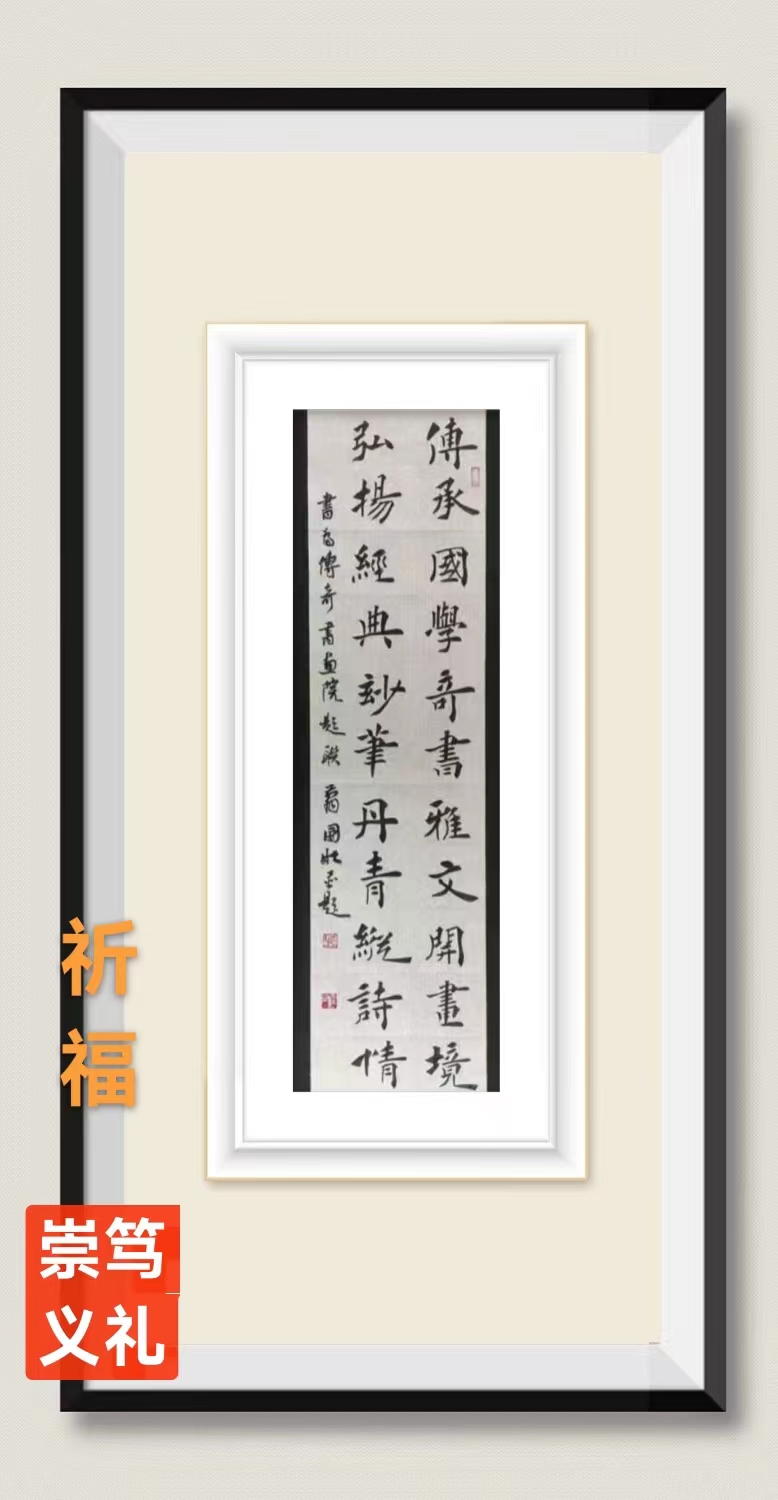 傳承國學奇書雅文開畫境
弘揚經典妙筆丹青縱詩情
書為傳奇書畫院題聯
國壯並題
祈福
崇笃
义礼